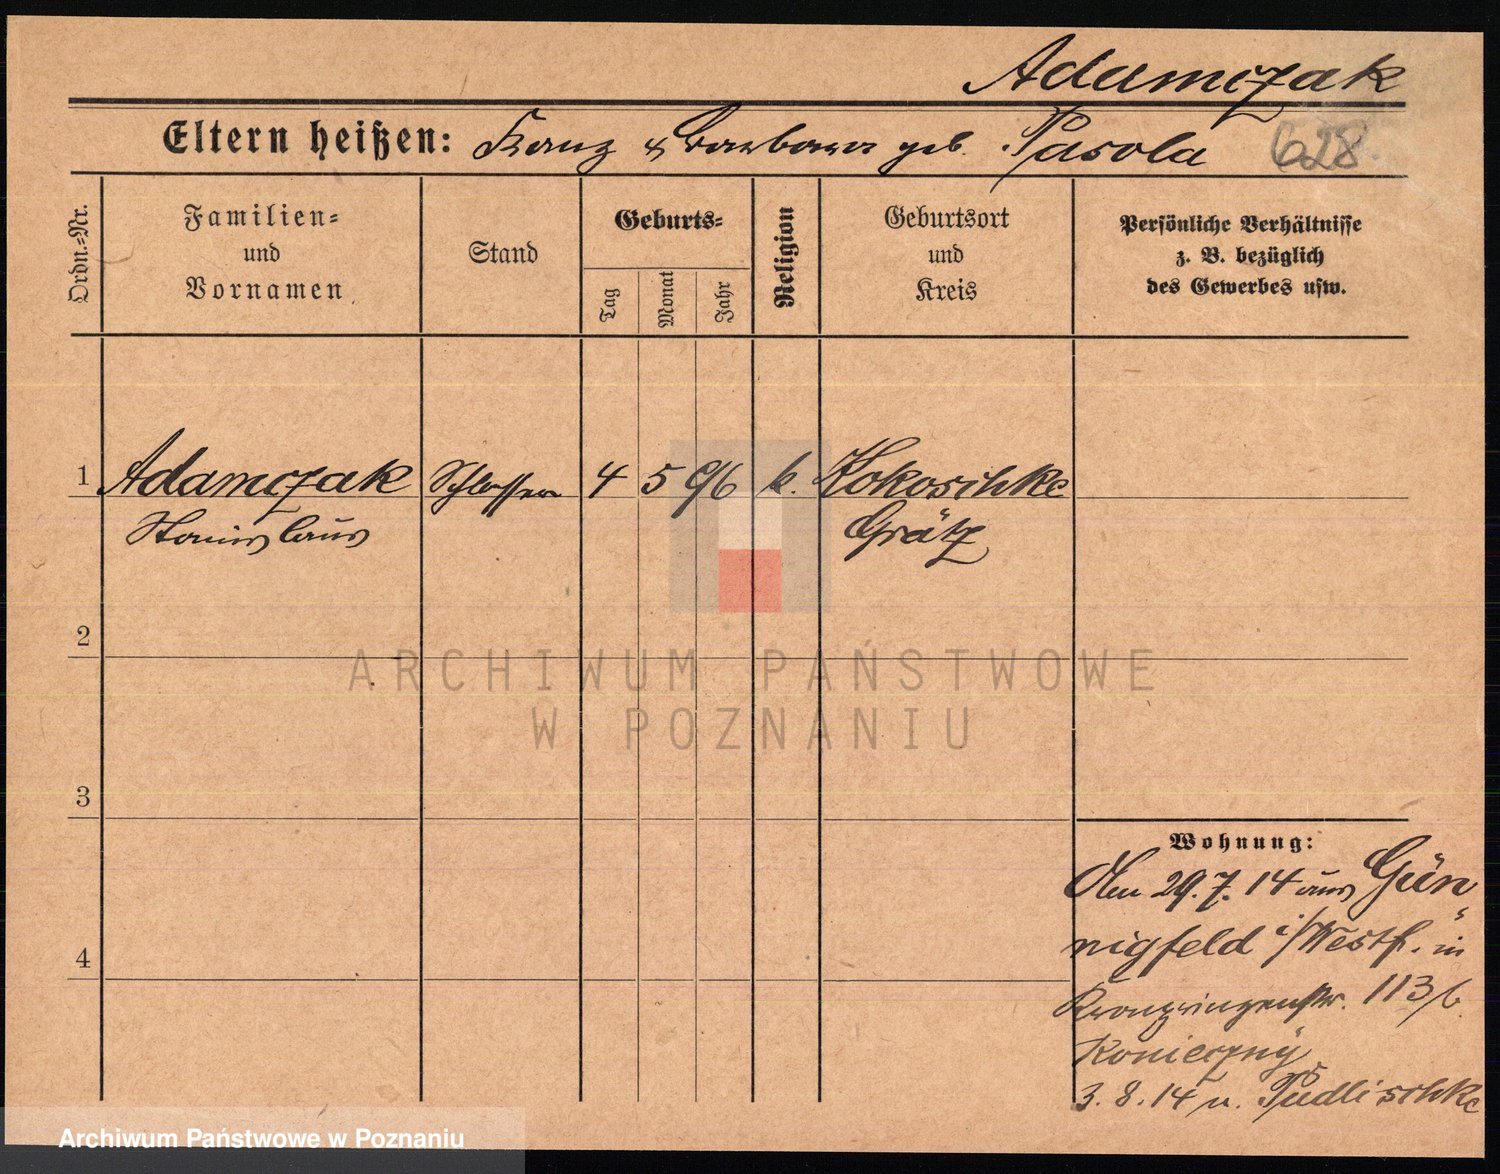 Adamczak
Eltern heißen: Franz & Barbara geb. Pasola 628.
Ordn.-Nr.
Familien-
und
Vornamen
Stand
Geburts-
Tag
Monat
Jahr
Religion
Geburtsort
und
Kreis
Persönliche Verhältnisse
z. B. bezüglich
des Gewerbes usw.
1 Adamczak Schlosser 4 5 96 k. Kokoschke
Stanislaus Grätz
2
ARCHIWUM PAŃSTWOWE
W POZNANIU
3
Wohnung:
29.7.14 aus Gün
nigfeld i/Westf. in
4
Kronprinzenstr. 113/b.
Konieczny
3.8.14 n. Pudlischke
Archiwum Państwowe w Poznaniu